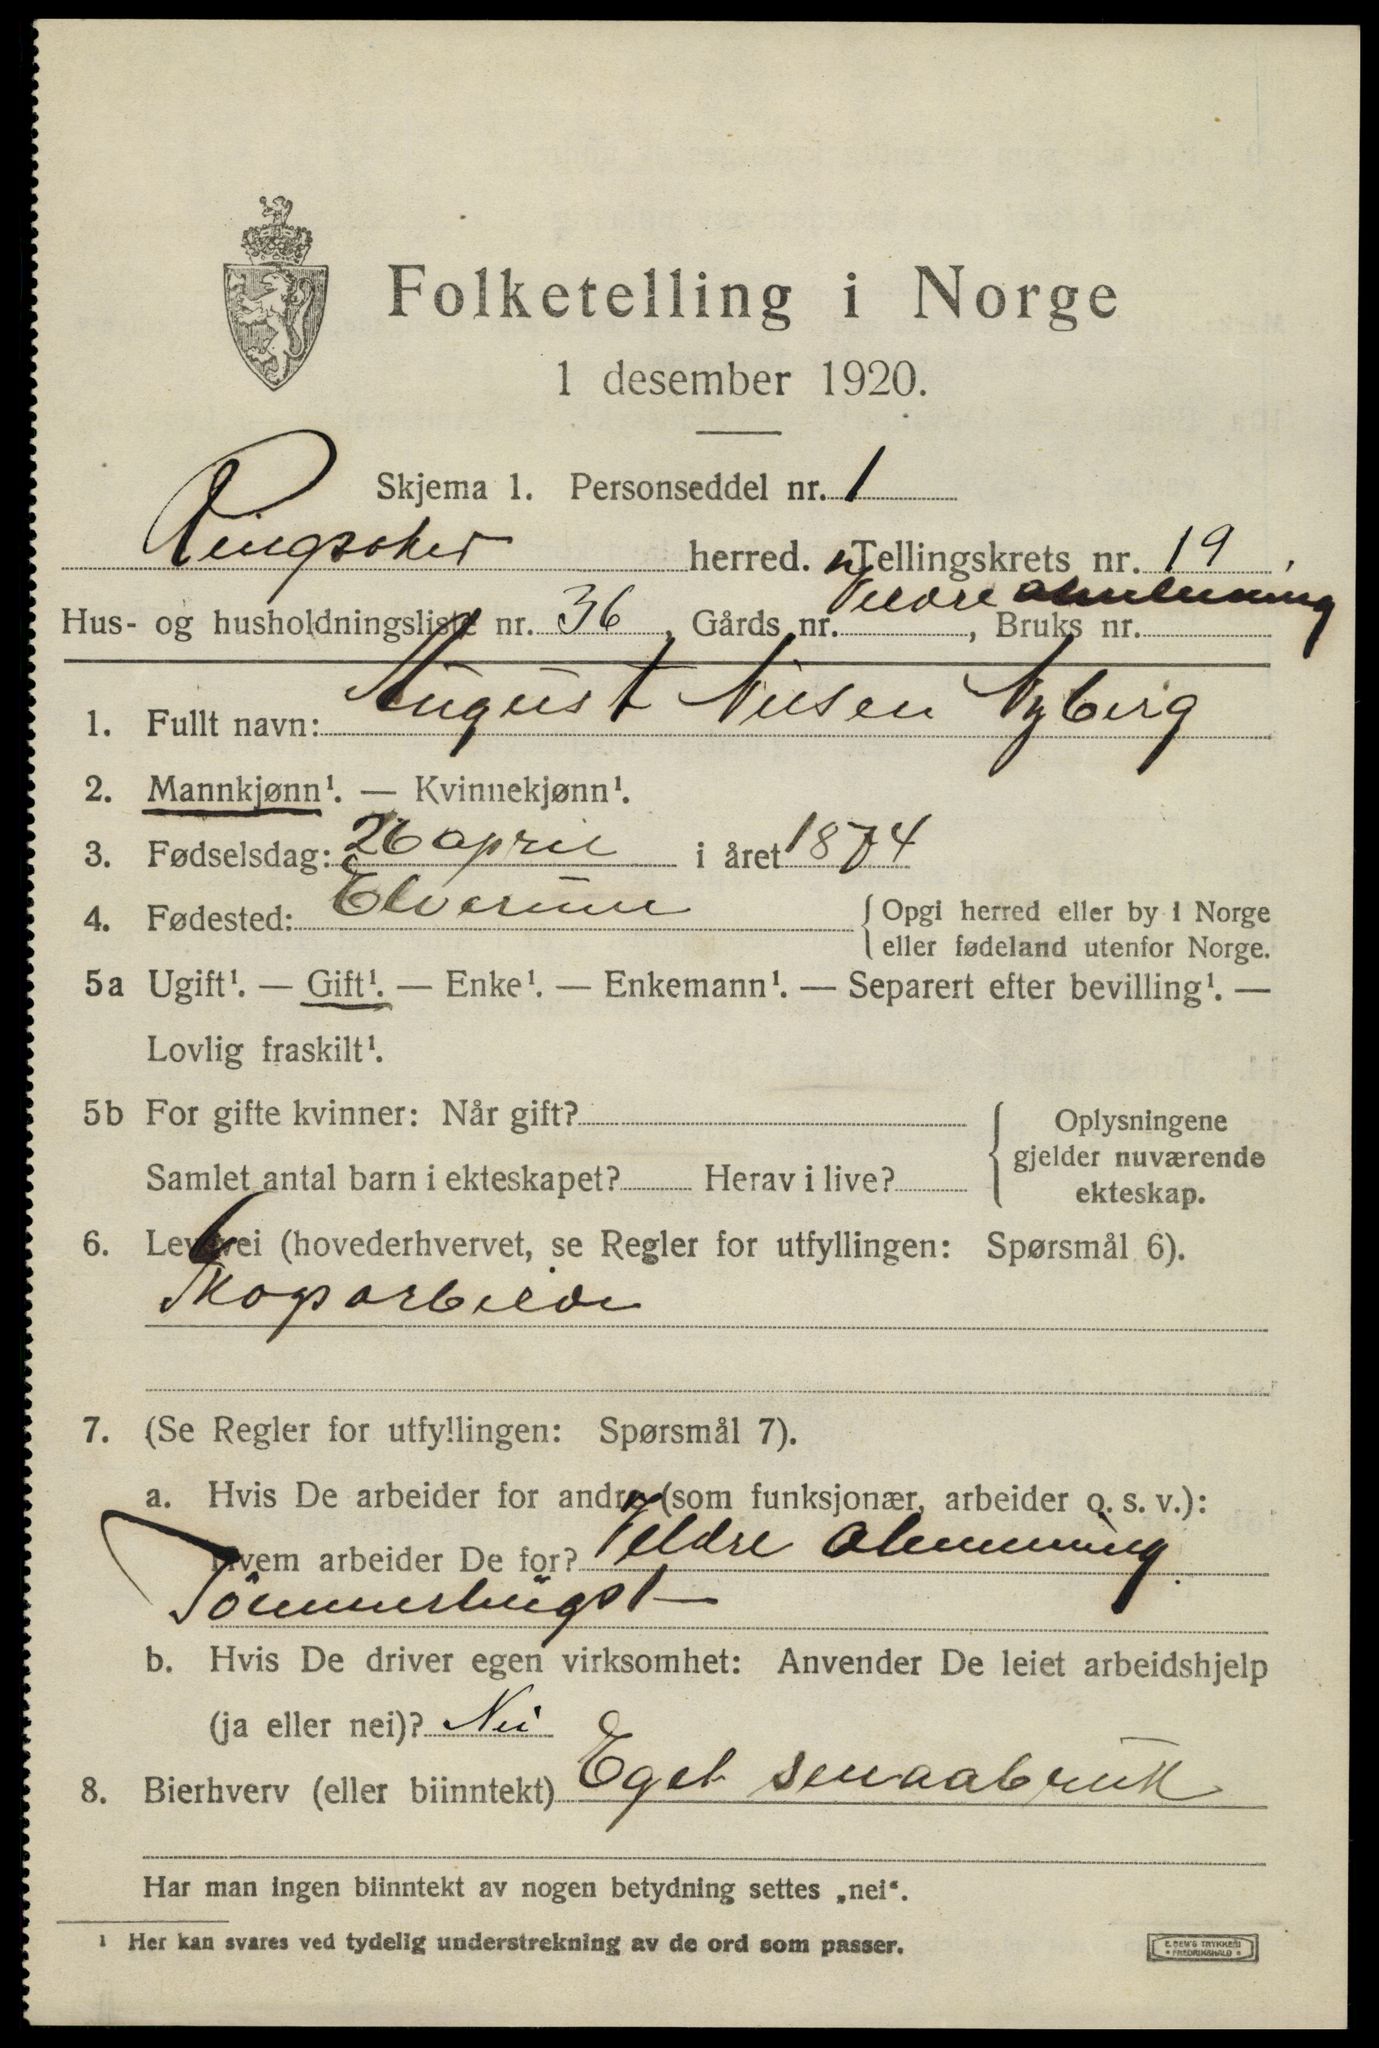 Folketelling i Norge
1 desember 1920.
Skjema 1. Personseddel nr. 1
Ringsaker herred. Tellingskrets nr. 19
Veldre almenning
Hus- og husholdningsliste nr. 36, Gårds nr. , Bruks nr.
1. Fullt navn: August Nilsen Nyberg
2. Mannkjønn¹. — Kvinnekjønn¹.
3. Fødselsdag: 26 april i året 1874
4. Fødested: Elverum { Opgi herred eller by i Norge
eller fødeland utenfor Norge.
5a Ugift¹. — Gift¹. — Enke¹. — Enkemann¹. — Separert efter bevilling¹. —
Lovlig fraskilt¹.
5b For gifte kvinner: Når gift? { Oplysningene
gjelder nuværende
Samlet antal barn i ekteskapet? Herav i live? ekteskap.
6. Levevei (hovederhvervet, se Regler for utfyllingen: Spørsmål 6).
Skogsarbeide
7. (Se Regler for utfyllingen: Spørsmål 7).
a. Hvis De arbeider for andre (som funksjonær, arbeider o. s. v.):
Hvem arbeider De for? Veldre Almenning
Tömmerhugst
b. Hvis De driver egen virksomhet: Anvender De leiet arbeidshjelp
(ja eller nei)? Nei
8. Bierhverv (eller biinntekt) Eget smaabruk
Har man ingen biinntekt av nogen betydning settes „nei“.
¹ Her kan svares ved tydelig understrekning av de ord som passer.
E. SEM'S TRYKKERI
FREDRIKSHALD